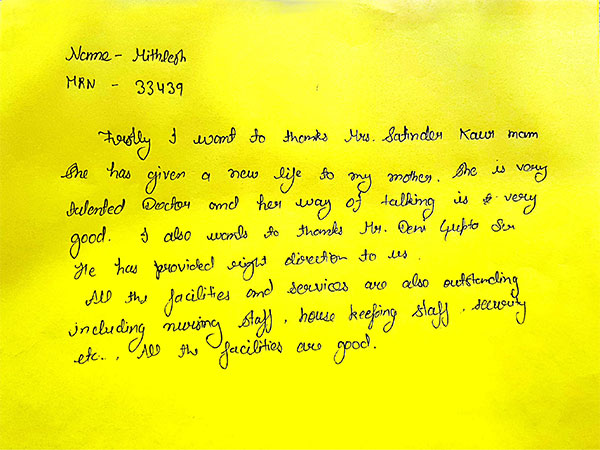 Name - Mithlesh
MRN - 33439
Firstly I want to thanks Mrs. Satinder Kaur mam
She has given a new life to my mother. She is very
talented Doctor and her way of talking is very
good. I also wants to thanks Mr. Dev Gupta Sir
He has provided right direction to us.
All the facilities and services are also outstanding
including nursing staff, house keeping staff, security
etc.. All the facilities are good.